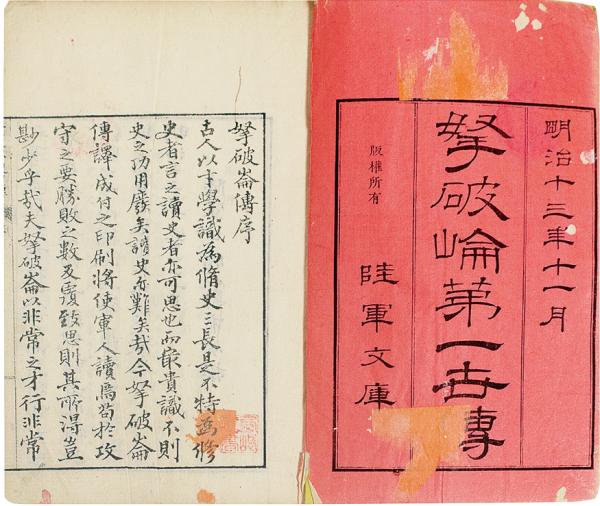 明治十三年十一月
拏破崙第一世傳
版權所有
陸軍文庫
拏破崙傳序
古人以才學識為脩史三長是不特為修
史者言之讀史者亦可思也而最貴識不則
史之功用廢矣讀史亦難矣哉今拏破崙
傳譯成付之印刷將使軍人讀焉苟於攻
守之要勝敗之數反覆致思則其所得豈
尠少乎哉夫拏破崙以非常之才行非常